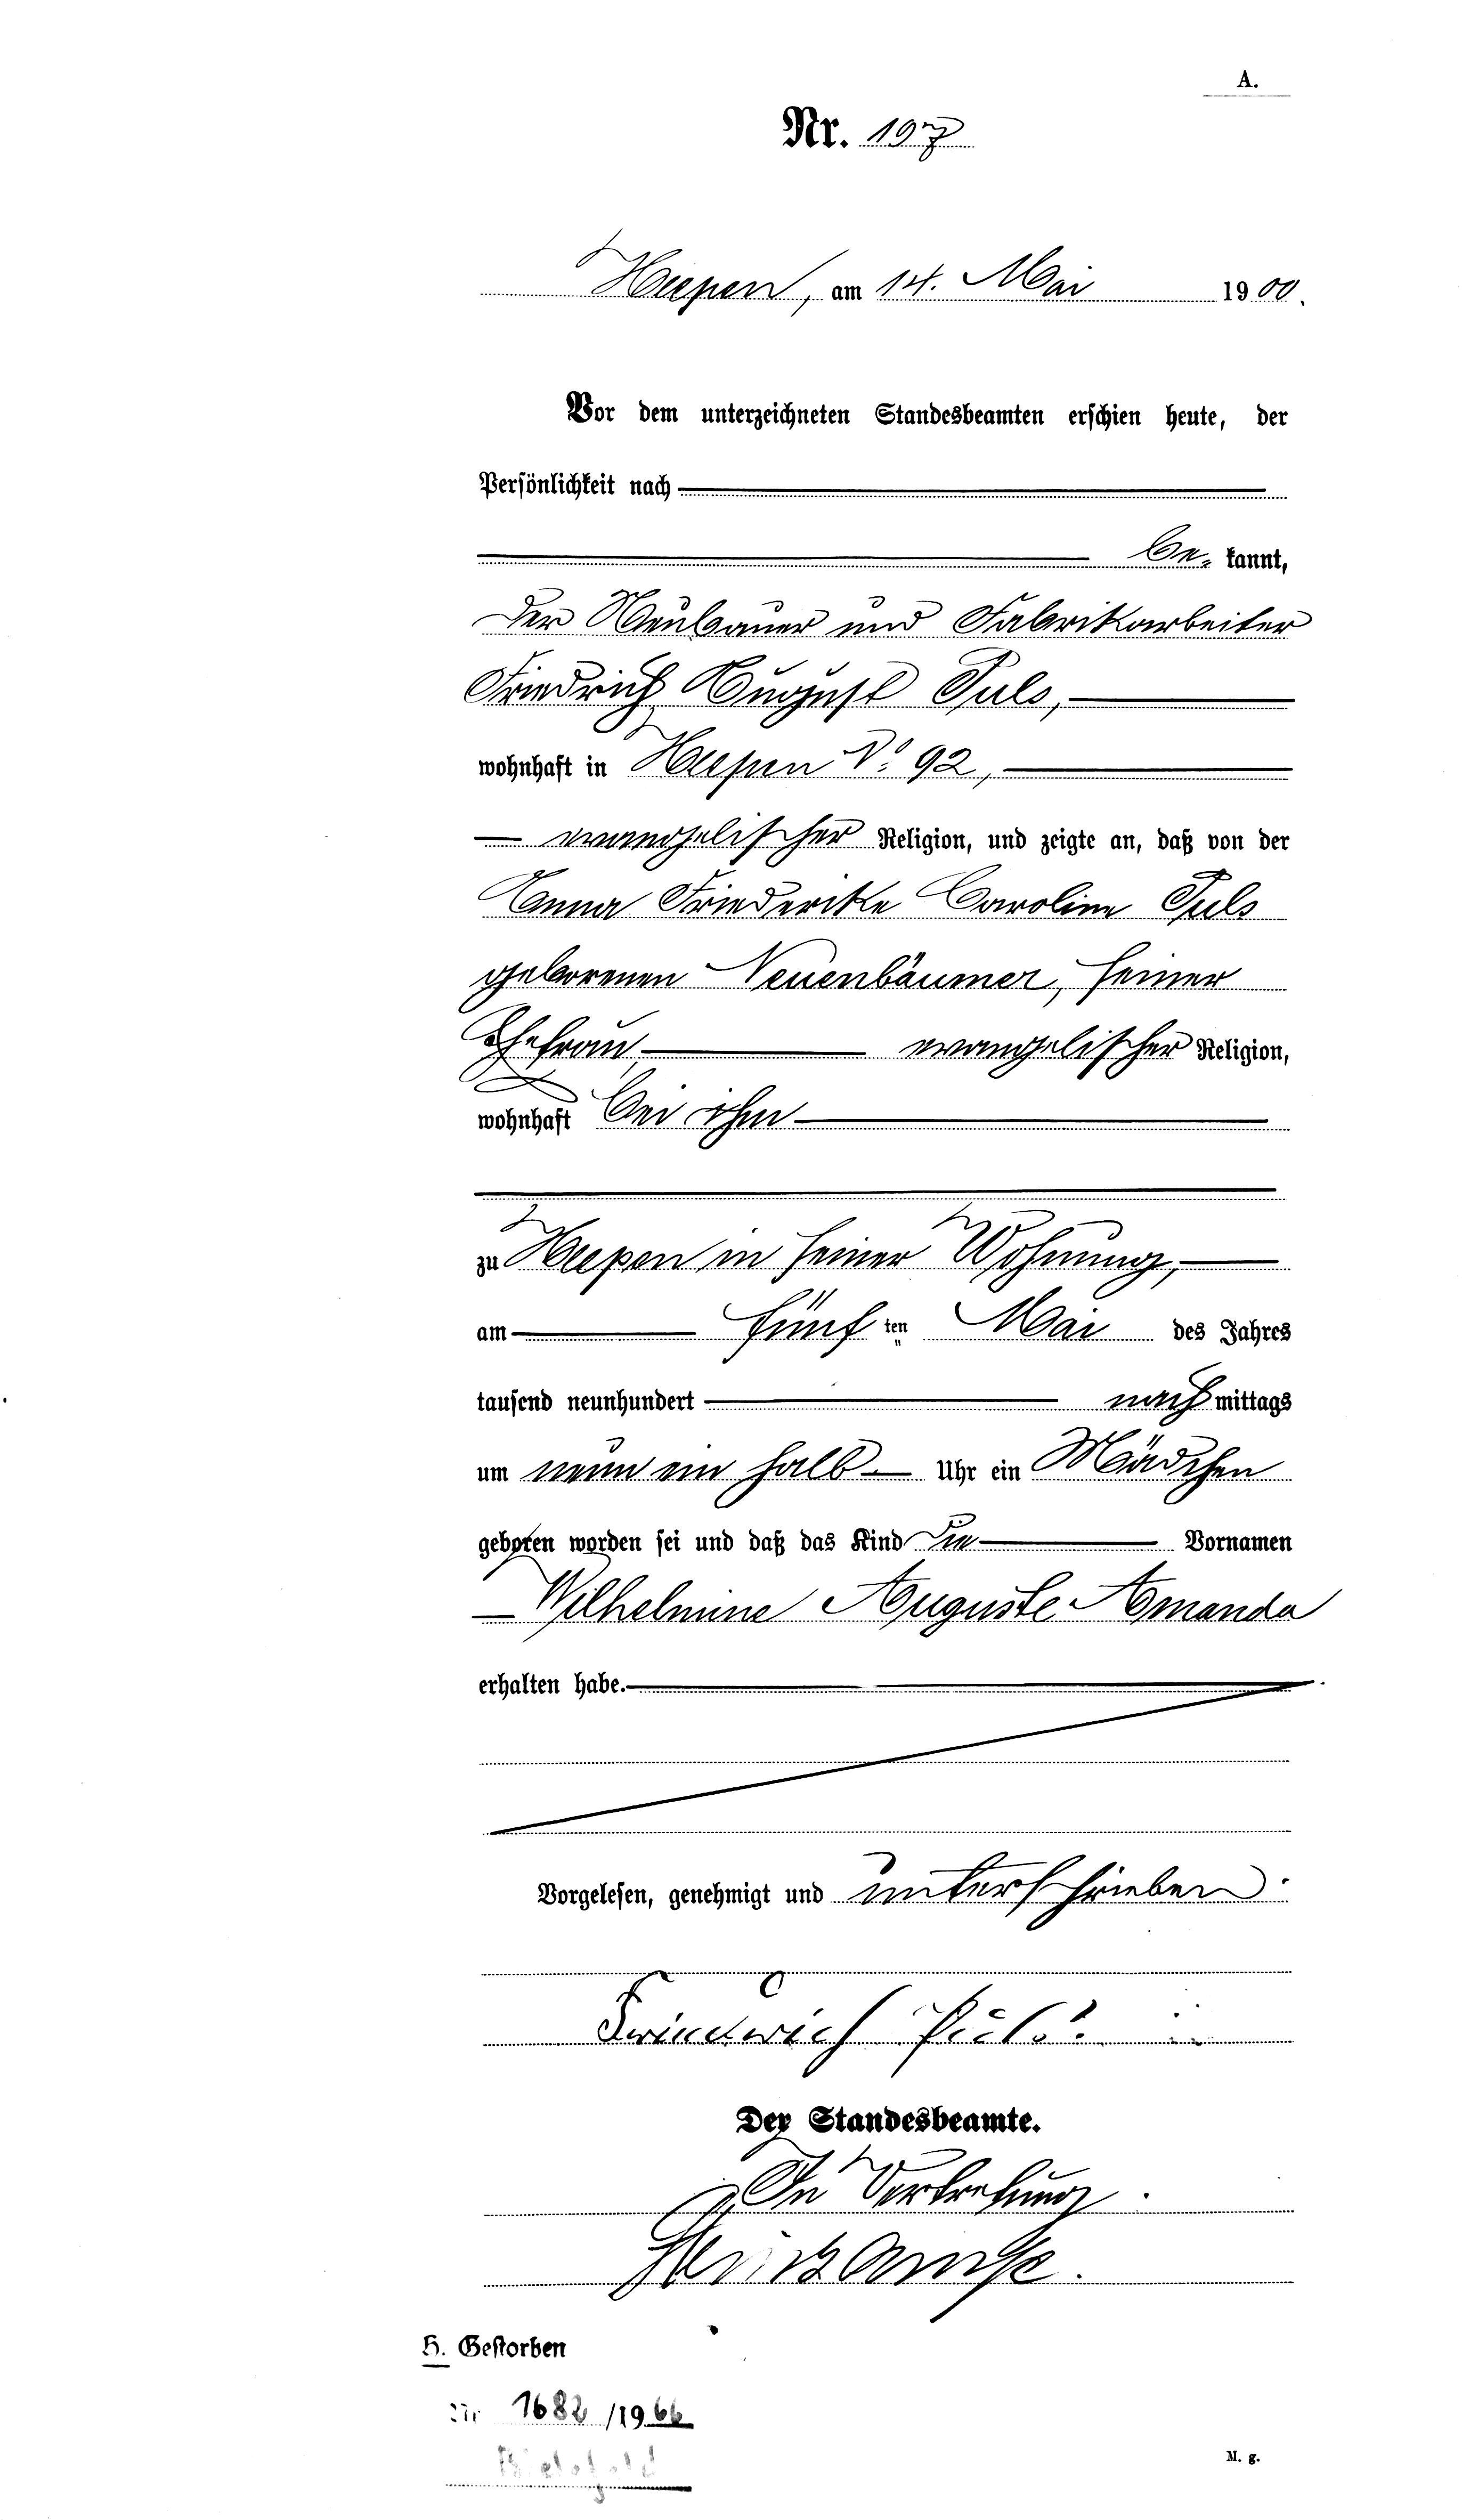 A.
Nr. 197
Heepen, am 14. Mai 1900.
Vor dem unterzeichneten Standesbeamten erschien heute, der
Persönlichkeit nach
be- kannt,
der Neubauer und Fabrikarbeiter
Friedrich August Puls,
wohnhaft in Heepen No 92,
evangelischer Religion, und zeigte an, daß von der
Anna Friederike Caroline Puls
geborenen Neuenbäumer, seiner
Ehefrau, evangelischer Religion,
wohnhaft bei ihm
zu Heepen in seiner Wohnung,
am fünf ten Mai des Jahres
tausend neunhundert nach mittags
um neun ein halb Uhr ein Mädchen
geboren worden sei und daß das Kind die Vornamen
Wilhelmine Auguste Amanda
erhalten habe.
Vorgelesen, genehmigt und unterschrieben
Friederich Puls
Der Standesbeamte.
In Vertretung
H. Gestorben
Nr 1682/1966
Bielefeld
M. g.